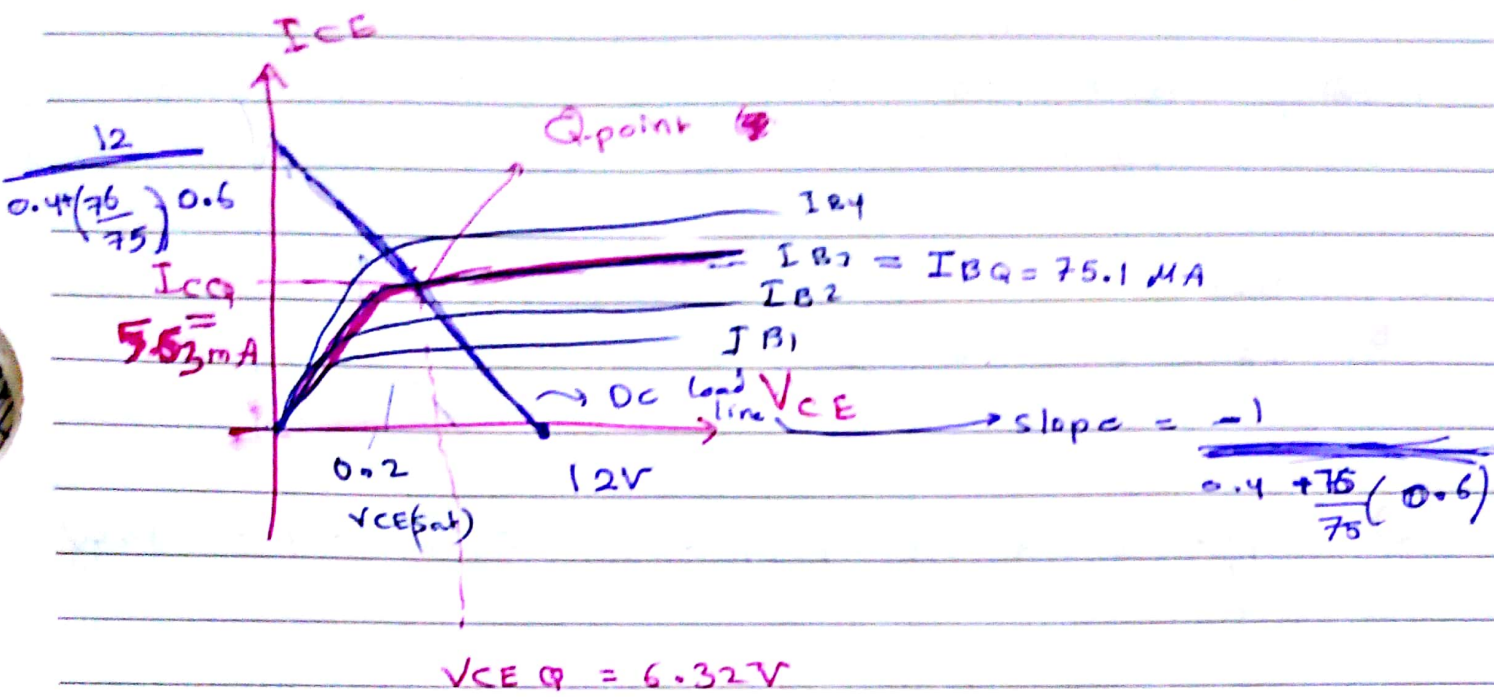 ICE
Q-point
12
0.4+(76/75)0.6
IB4
IB3 = IBQ = 75.1 μA
IB2
IB1
ICQ
=
5.63mA
→ DC load line
VCE
slope = -1
0.4 + 76/75 (0.6)
0.2
12V
VCE(sat)
VCEQ = 6.32V